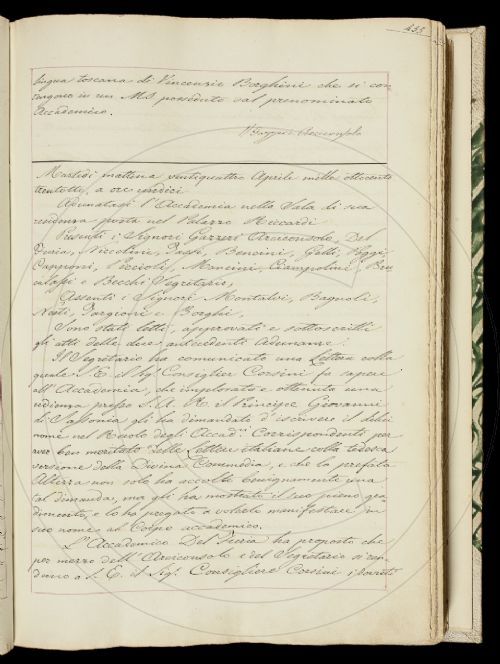 453
lingua toscana di Vincenzio Borghini che si con
tengono in un MS posseduto dal prenominato
Accademico.
Martedì mattina ventiquattro Aprile mille ottocento
trentotto, a ore undici
Adunatasi l'Accademia nella Sala di sua
residenza posta nel Palazzo Riccardi
Presenti i Signori Gazzeri Arciconsolo, Del
Furia, Niccolini, Bencini, Gatti, Poggi,
Capponi, Piccioli, Mancini, Ciampolini, Bru
calassi e Becchi Segretario,
Assenti i Signori Montalvi, Bagnoli,
Nesti, Targioni e Borghi,
Sono stati letti, approvati e sottoscritti
gli atti delle due antecedenti Adunanze.
Il Segretario ha comunicato una Lettera colla
quale S. E. il Sigr Consiglier Corsini fa sapere
all'Accademia, che implorata e ottenuta una
udienza presso S. A. R. il Principe Giovanni
di Sassonia gli ha dimandato d'iscrivere il di lui
nome nel Ruolo degli Accad.ci Corrispondenti per
aver ben meritato delle Lettere italiane colla tedesca
versione della Divina Commedia, e che la prefata
Altezza non solo ha accolto benignamente una
tal dimanda, ma gli ha mostrato il suo pieno gra
dimento, e lo ha pregato a volerlo manifestare in
suo nome al Corpo accademico.
L'Accademico Del Furia ha proposto che
per mezzo dell'Arciconsolo e del Segretario si ren
dano a S. E. il Sigr. Consigliere Corsini i dovuti